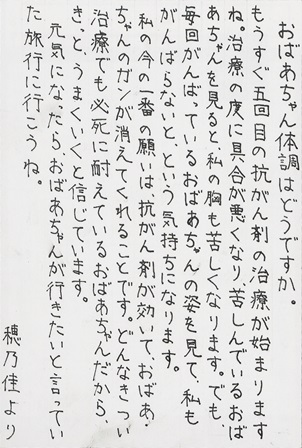 おばあちゃん体調はどうですか。
もうすぐ五回目の抗がん剤の治療が始まります
ね。治療の度に具合が悪くなり苦しんでいるおば
あちゃんを見ると、私の胸も苦しくなります。でも、
毎回がんばっているおばあちゃんの姿を見て、私も
がんばらないと、という気持ちになります。
私の今の一番の願いは抗がん剤が効いて、おばあ
ちゃんのガンが消えてくれることです。どんなきつい
治療でも必死に耐えているおばあちゃんだから
きっと、うまくいくと信じています。
元気になったら、おばあちゃんが行きたいと言ってい
た旅行に行こうね。
穂乃佳より